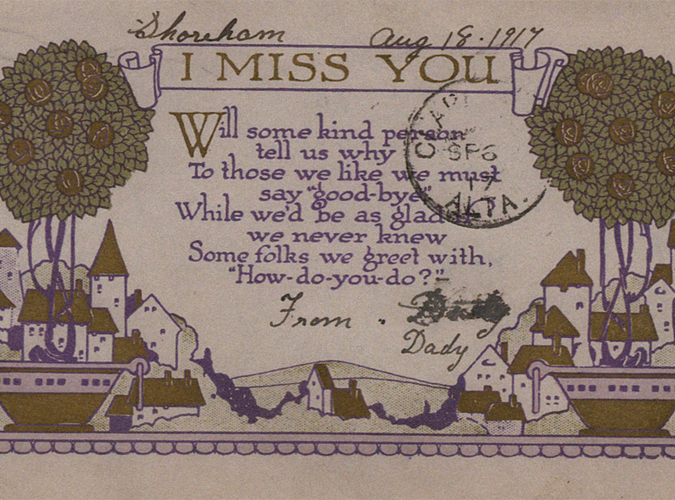 Shoreham Aug 18. 1917
I MISS YOU
Will some kind person
tell us why
To those we like we must
say "good-bye"
While we'd be as glad
we never knew
Some folks we greet with,
"How-do-you-do?"
SP 6
17
ALTA.
From . Dady
Dady